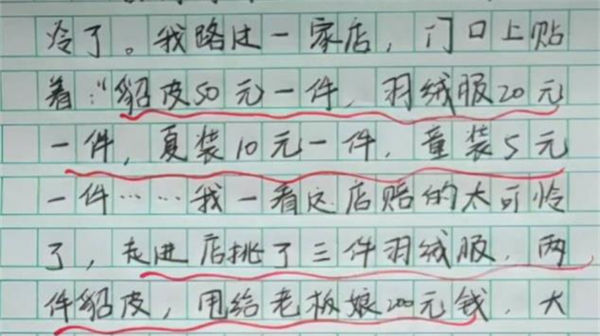 冷了。我路过一家店，门口上贴
着："貂皮50元一件，羽绒服20元
一件，夏装10元一件，童装5元
一件……我一看这店赔的太可怜
了，走进店挑了三件羽绒服，两
件貂皮，甩给老板娘200元钱，大